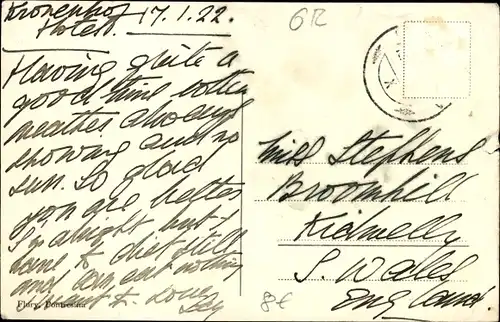 Kronenhof
Hotel. 17.1.22.
6R
Having quite a
good time rotten
weather always
snowing and no
sun. So glad
you are better
I'm alright but I
have to diet still
and can eat nothing
I want to. Love
Flury, Pontresina
Miss Stephens
Broomhill
Kidwelly
S. Wales
England
8E